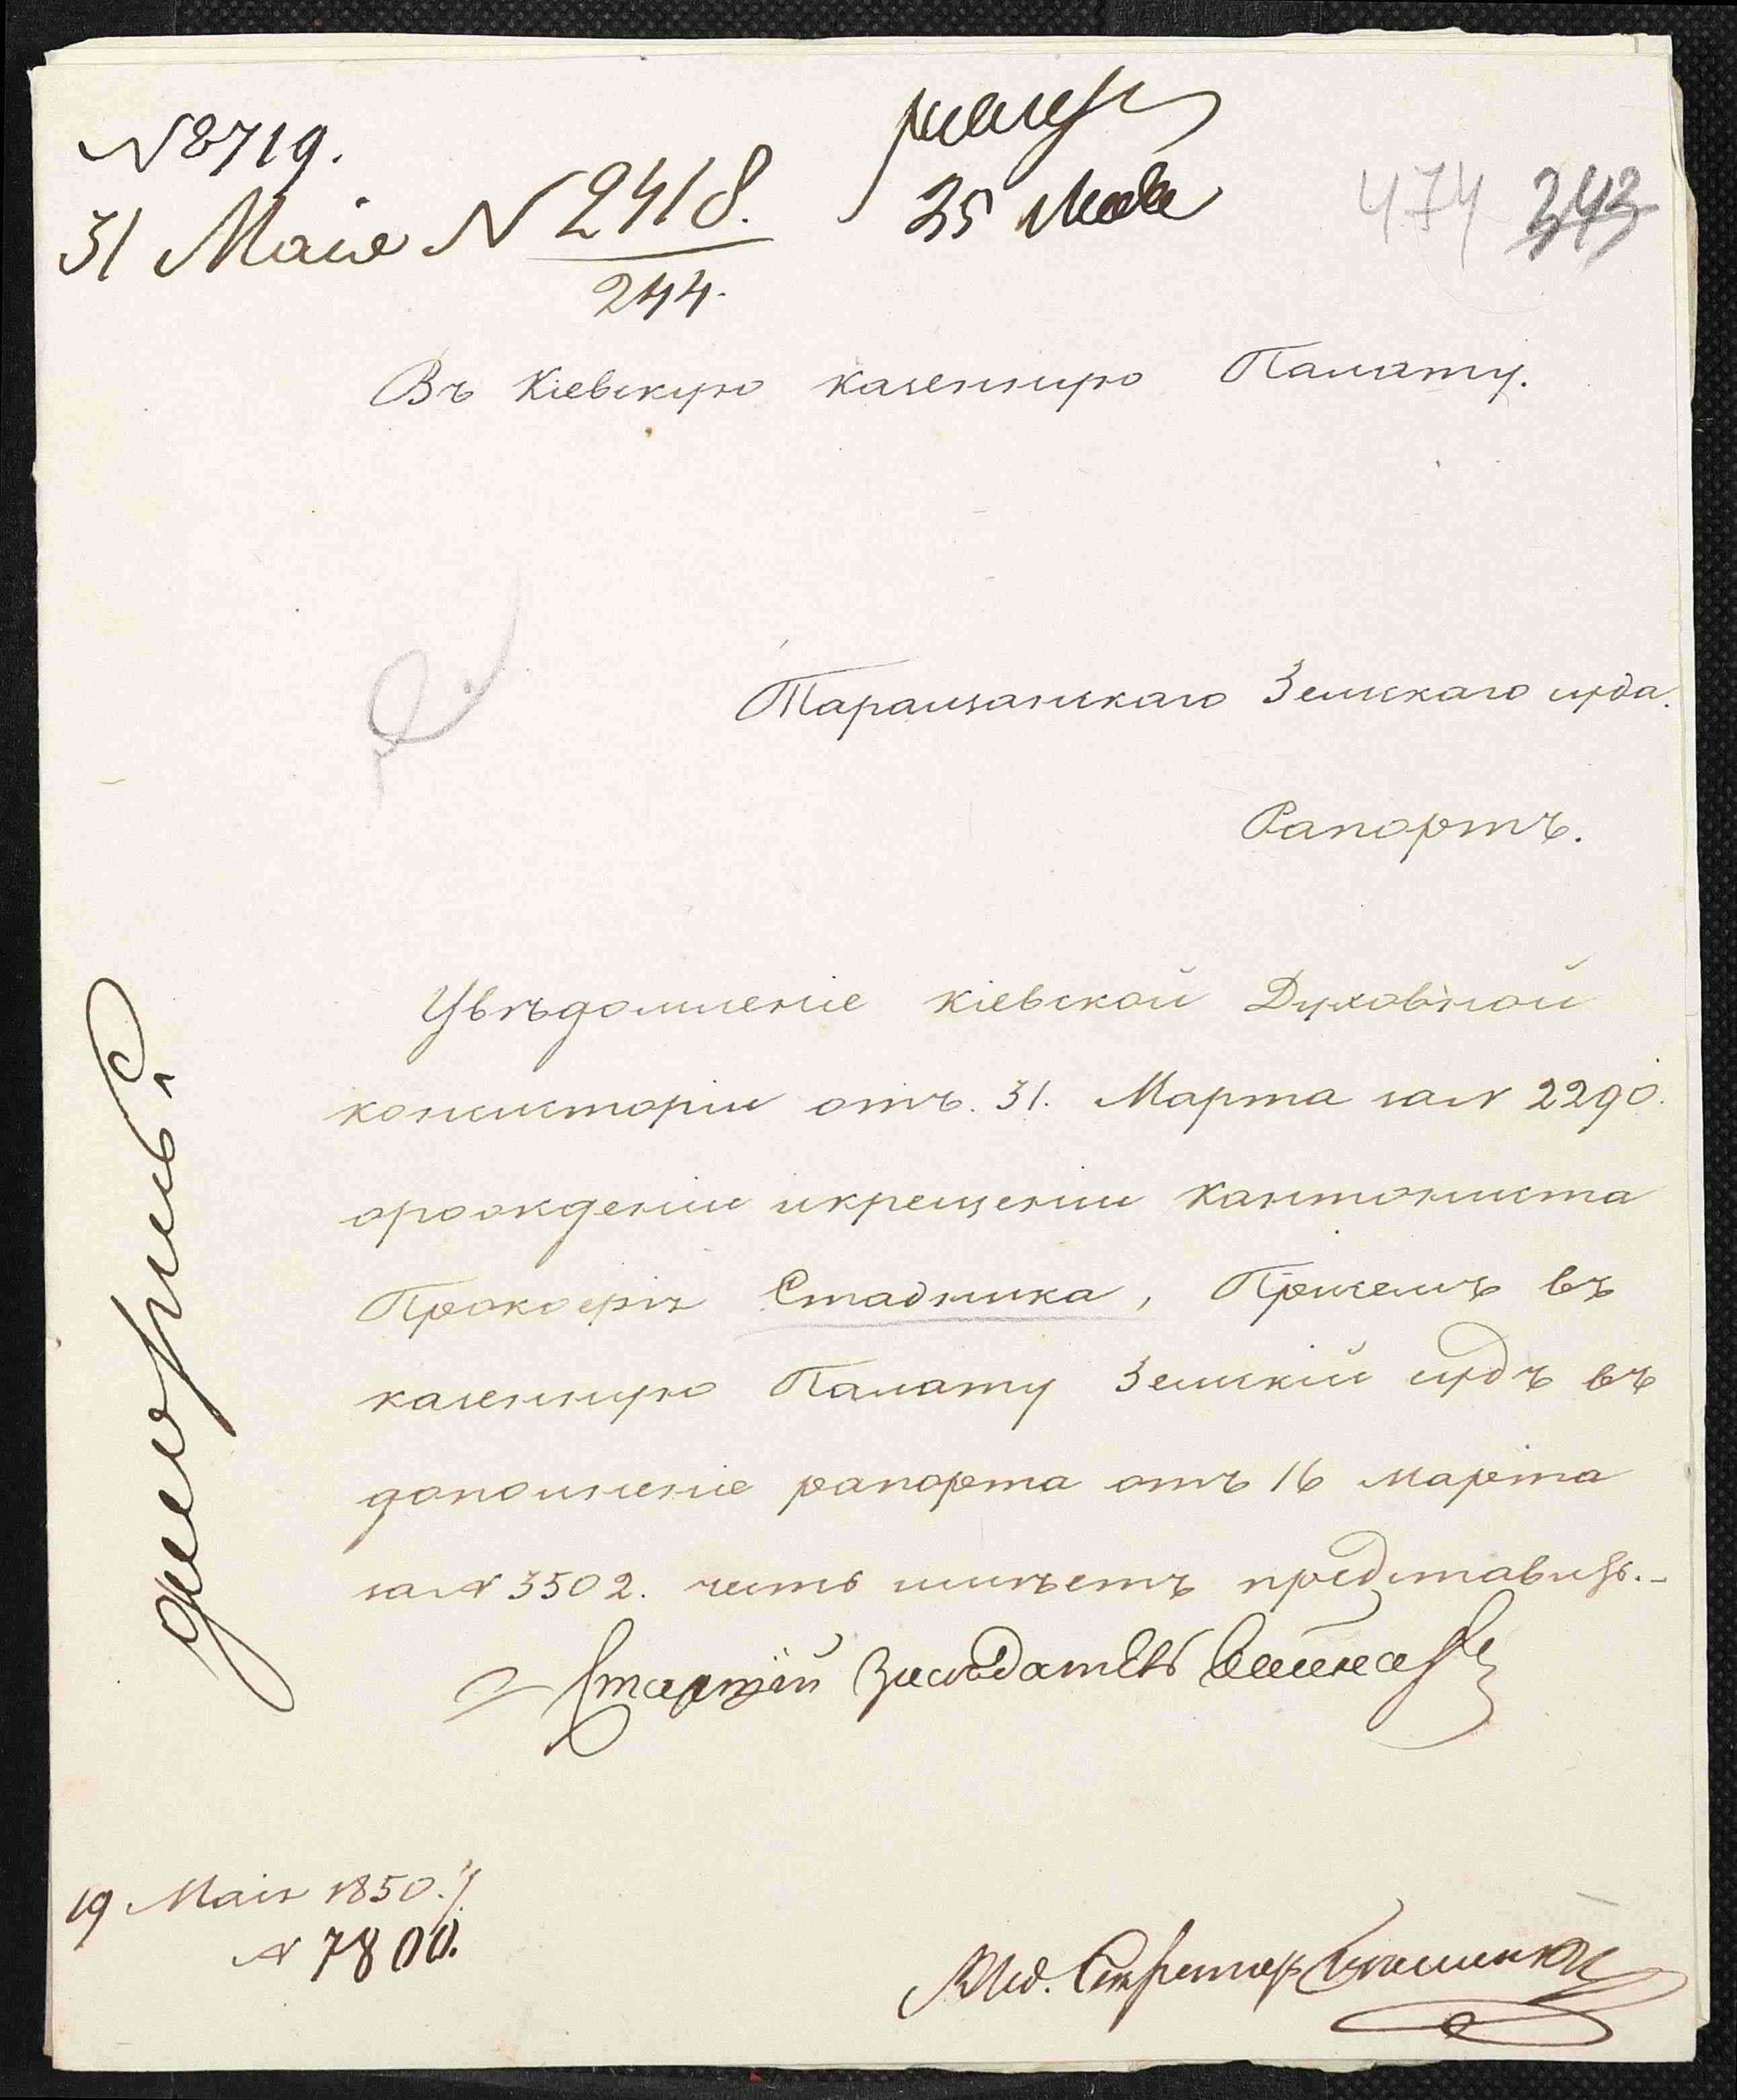 N 8719.
31 Маія N 2418.
244.
25 Мая
474 343
Въ Кіевскую казенную Палату.
Таращанскаго Земскаго суда.
Рапортъ.
Увѣдомленіе Кіевской Духовной
консисторіи отъ. 31. Марта за N 2290.
орождении икрещении Кантониста
Прокофія Стадника, Причемъ въ
казенную Палату Земскій судъ въ
дополненіе рапорта отъ 16 марта
за N 3502. честь имѣетъ представить.
Старшій Засѣдатель
19 Маія 1850.
N 7800.
Секретарь